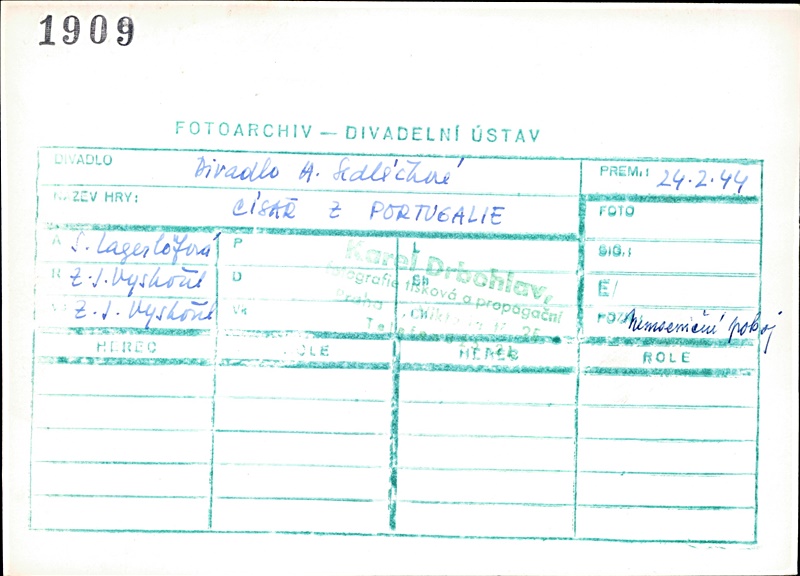 1909
FOTOARCHIV — DIVADELNÍ ÚSTAV
DIVADLO Divadlo A. Sedláčkové PREM.: 24.2.44
NÁZEV HRY: CÍSAŘ Z PORTUGALIE FOTO
A S. Lagerlöfová P L SIG.:
R Z. J. Vyskočil D SH E/
Z. J. Vyskočil VK POZN. Nemocniční pokoj
Karel Drbohlav,
fotografie tisková a propagační
Praha
Telefon
HEREC ROLE HEREC ROLE